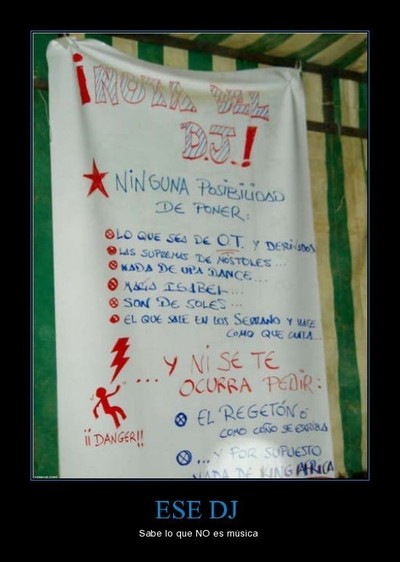 ¡NOTA DEL
D.J.!
NINGUNA POSIBILIDAD
DE PONER:
LO QUE SEA DE O.T. Y DERIVADOS
LAS SUPREMAS DE MÓSTOLES...
NADA DE UPA DANCE...
MARÍA ISABEL...
SON DE SOLES...
EL QUE SALE EN LOS SERRANO Y HACE
COMO QUE CANTA...
...Y NI SE TE
OCURRA PEDIR:
¡¡DANGER!!
EL REGETÓN O
COMO COÑO SE ESCRIBA
...Y POR SUPUESTO
NADA DE KING AFRICA
ESE DJ
Sabe lo que NO es música